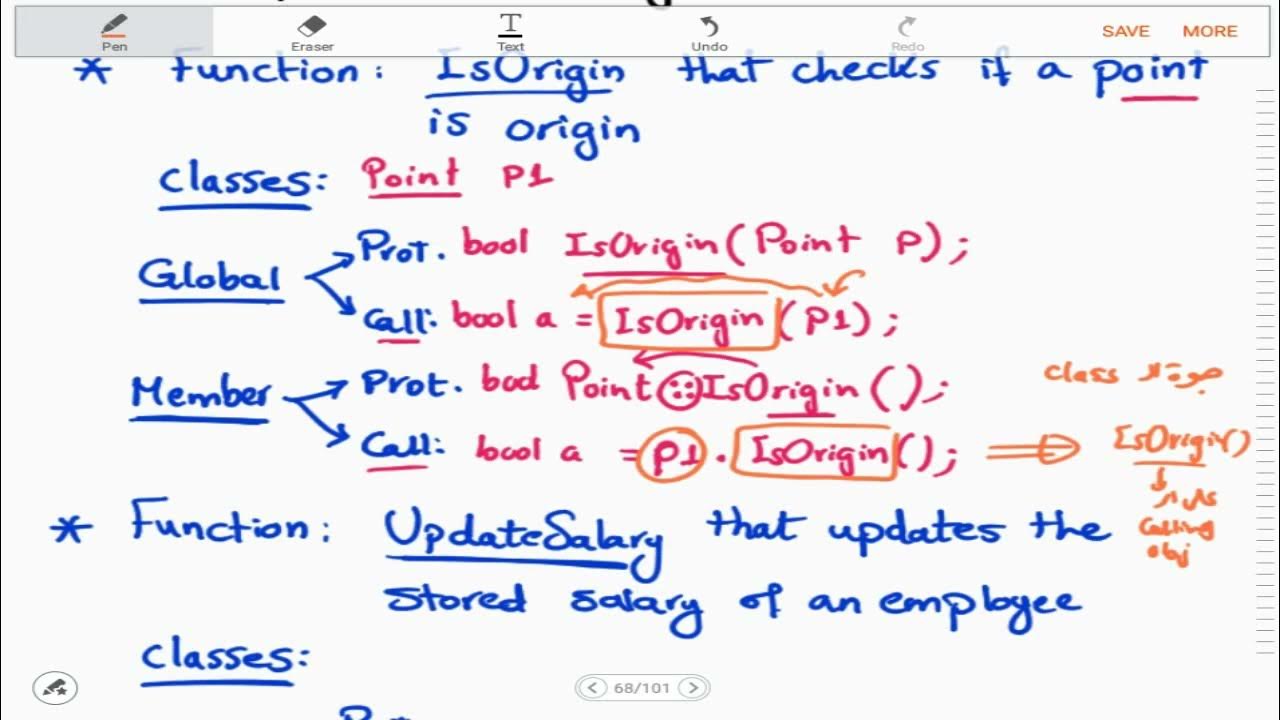 Pen Eraser Text Undo Redo SAVE MORE
* Function: IsOrigin that checks if a point
is origin
Classes: Point P1
Global
Prot. bool IsOrigin(Point P);
Call: bool a = IsOrigin (P1);
Member
Prot. bool Point::IsOrigin();
Call: bool a = P1.IsOrigin();
class جوة الـ
IsOrigin()
calling
obj
* Function: UpdateSalary that updates the
stored salary of an employee
Classes:
68/101